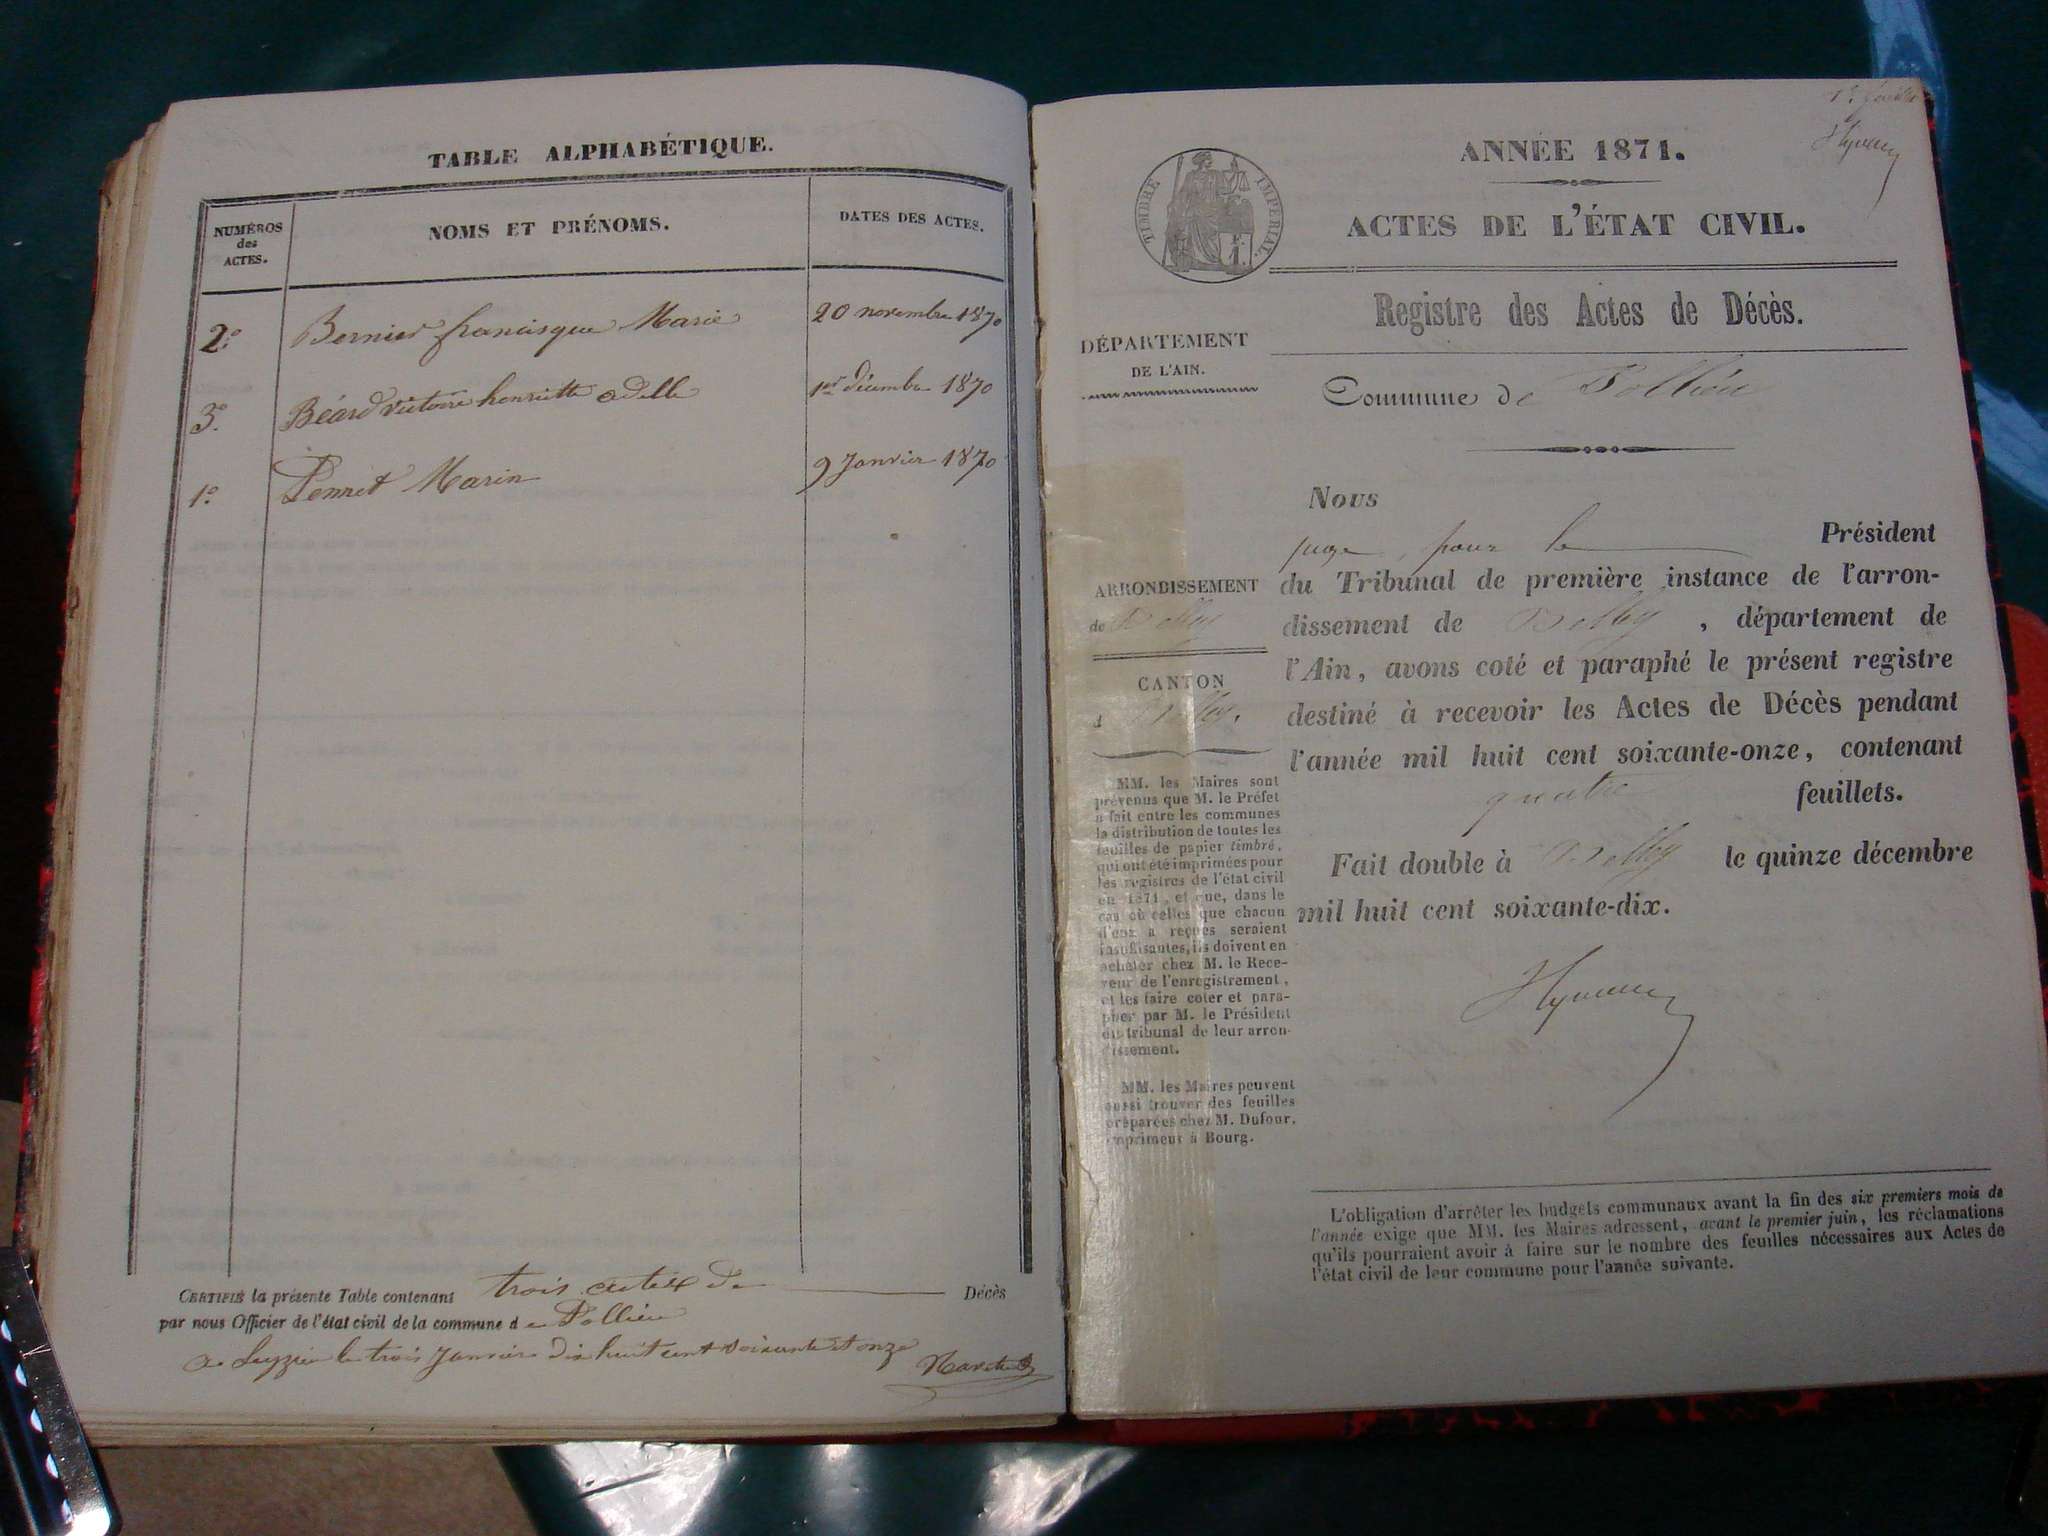 TABLE ALPHABÉTIQUE.
NUMÉROS
des
ACTES.
NOMS ET PRÉNOMS.
DATES DES ACTES.
2° Bernier francisque Marie 20 novembre 1870
3° Béard victoire henriette adelle 1er décembre 1870
1° Penret Marin 9 Janvier 1870
CERTIFIÉ la présente Table contenant trois actes de Décès
par nous Officier de l'état civil de la commune de Pollieu
a Leyzieu le trois Janvier dix huit cent soixante et onze
ANNÉE 1871.
TIMBRE IMPÉRIAL.
1 F.
ACTES DE L'ÉTAT CIVIL.
Registre des Actes de Décès.
DÉPARTEMENT
DE L'AIN.
Commune de Pollieu
ARRONDISSEMENT
de Belley
CANTON
d Belley.
MM. les Maires sont
prévenus que M. le Préfet
a fait entre les communes
la distribution de toutes les
feuilles de papier timbré,
qui ont été imprimées pour
les registres de l'état civil
en 1871, et que, dans le
cas où celles que chacun
d'eux a reçues seraient
insuffisantes, ils doivent en
acheter chez M. le Rece-
veur de l'enregistrement,
et les faire coter et para-
pher par M. le Président
du tribunal de leur arron-
dissement.
MM. les Maires peuvent
aussi trouver des feuilles
préparées chez M. Dufour,
imprimeur à Bourg.
Nous
juge pour le Président
du Tribunal de première instance de l'arron-
dissement de Belley, département de
l'Ain, avons coté et paraphé le présent registre
destiné à recevoir les Actes de Décès pendant
l'année mil huit cent soixante-onze, contenant
quatre feuillets.
Fait double à Belley le quinze décembre
mil huit cent soixante-dix.
L'obligation d'arrêter les budgets communaux avant la fin des six premiers mois de
l'année exige que MM. les Maires adressent, avant le premier juin, les réclamations
qu'ils pourraient avoir à faire sur le nombre des feuilles nécessaires aux Actes de
l'état civil de leur commune pour l'année suivante.